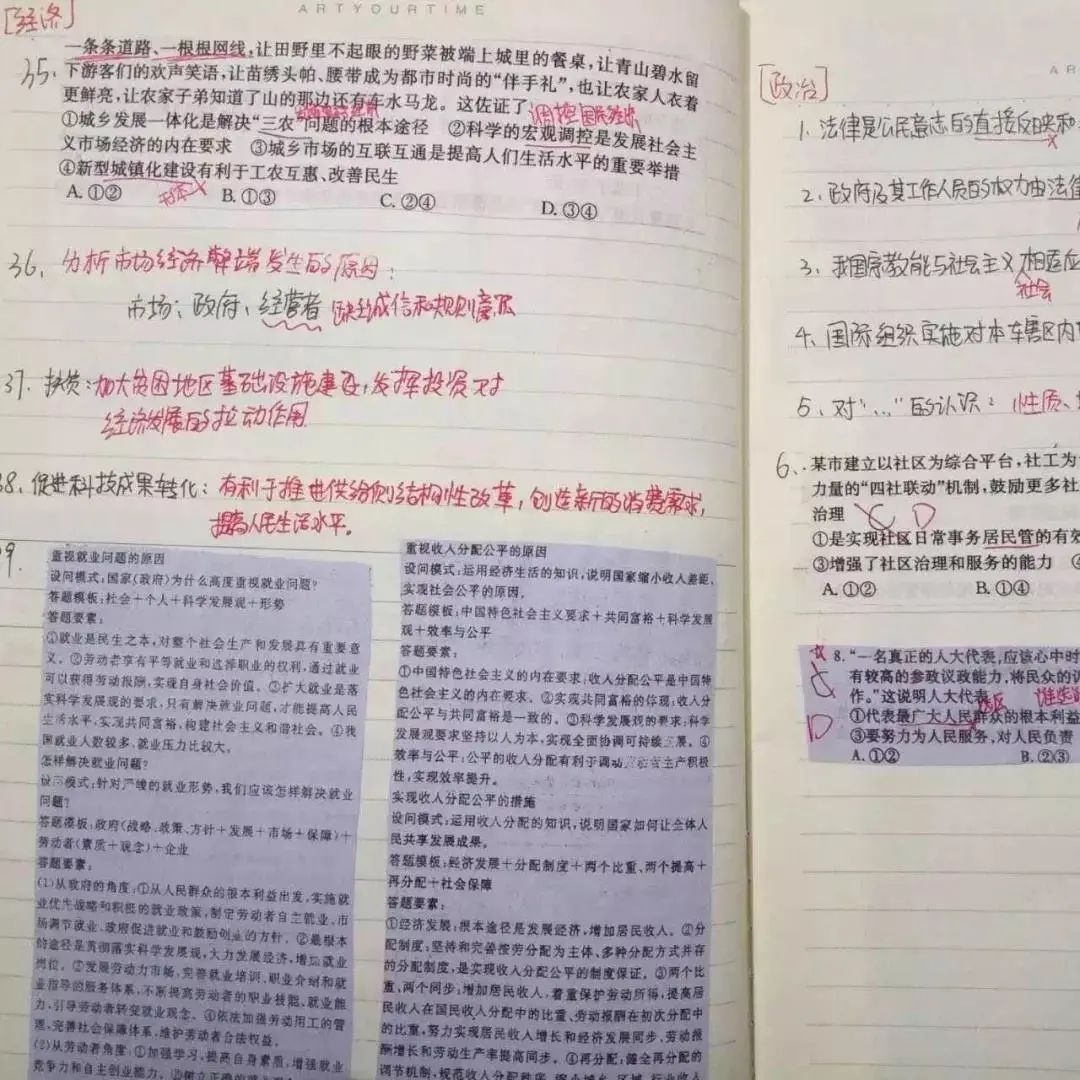 ARTYOURTIME
[经济]
35.
一条条道路、一根根网线,让田野里不起眼的野菜被端上城里的餐桌,让青山碧水留
下游客们的欢声笑语,让苗绣头帕、腰带成为都市时尚的“伴手礼”,也让农家人衣着
更鲜亮,让农家子弟知道了山的那边还有车水马龙。这佐证了
调控国民经济
①城乡发展一体化是解决“三农”问题的根本途径 ②科学的宏观调控是发展社会主
义市场经济的内在要求 ③城乡市场的互联互通是提高人们生活水平的重要举措
④新型城镇化建设有利于工农互惠、改善民生
A.①② B.①③ C.②④ D.③④
36、分析市场经济弊端发生的原因:
市场;政府;经营者 缺乏诚信和规则意识
37、扶贫:加大贫困地区基础设施建设,发挥投资对
经济发展的拉动作用
38、促进科技成果转化:有利于推进供给侧结构性改革,创造新的消费需求,
提高人民生活水平。
9.
重视就业问题的原因
设问模式:国家(政府)为什么高度重视就业问题?
答题模板:社会+个人+科学发展观+形势
答题要素:
①就业是民生之本,对整个社会生产和发展具有重要意
义。②劳动者享有平等就业和选择职业的权利,通过就业
可以获得劳动报酬,实现自身社会价值。③扩大就业是落
实科学发展观的要求,只有解决就业问题,才能提高人民
生活水平,实现共同富裕,构建社会主义和谐社会。④我
国就业人数较多、就业压力比较大。
怎样解决就业问题?
设问模式:针对严峻的就业形势,我们应该怎样解决就业
问题?
答题模板:政府(战略、政策、方针+发展+市场+保障)+
劳动者(素质+观念)+企业
答题要素:
(1)从政府的角度:①从人民群众的根本利益出发,实施就
业优先战略和积极的就业政策,制定劳动者自主就业、市
场调节就业、政府促进就业和鼓励创业的方针。②最根本
的途径是贯彻落实科学发展观,大力发展经济,增加就业
岗位。③发展劳动力市场,完善就业培训、职业介绍和就
业指导的服务体系,不断提高劳动者的职业技能、就业能
力,引导劳动者转变就业观念。④依法加强劳动用工的管
理,完善社会保障体系,维护劳动者合法权益。
(2)从劳动者角度:①加强学习,提高自身素质,增强就业
竞争力和自主创业能力。②树立正确的
重视收入分配公平的原因
设问模式:运用经济生活的知识,说明国家缩小收入差距、
实现社会公平的原因。
答题模板:中国特色社会主义要求+共同富裕+科学发展
观+效率与公平
答题要素:
①中国特色社会主义的内在要求,收入分配公平是中国特
色社会主义的内在要求。②实现共同富裕的体现:收入分
配公平与共同富裕是一致的。③科学发展观的要求:科学
发展观要求坚持以人为本,实现全面协调可持续发展。④
效率与公平:公平的收入分配有利于调动劳动者生产积极
性,实现效率提升。
实现收入分配公平的措施
设问模式:运用收入分配的知识,说明国家如何让全体人
民共享发展成果。
答题模板:经济发展+分配制度+两个比重、两个提高+
再分配+社会保障
答题要素:
①经济发展:根本途径是发展经济,增加居民收入。②分
配制度:坚持和完善按劳分配为主体、多种分配方式并存
的分配制度,是实现收入分配公平的制度保证。③两个比
重、两个同步:增加居民收入,着重保护劳动所得,提高居
民收入在国民收入分配中的比重、劳动报酬在初次分配中
的比重,努力实现居民收入增长和经济发展同步、劳动报
酬增长和劳动生产率提高同步。④再分配:健全再分配的
调节机制,规范收入分配秩序,缩小城乡、区域、行业收入
AR
[政治]
1、法律是公民意志的直接反映和
2、政府及其工作人员的权力由法律
3、我国宗教能与社会主义相适应
社会
4、国际组织实施对本辖区内
5、对“…”的认识:性质、
6、某市建立以社区为综合平台,社工为
力量的“四社联动”机制,鼓励更多社
治理 C D
①是实现社区日常事务居民管的有效
③增强了社区治理和服务的能力
A.①② B.①④
8.“一名真正的人大代表,应该心中时
有较高的参政议政能力,将民众的诉
作。”这说明人大代表
选区
①代表最广大人民群众的根本利益
③要努力为人民服务,对人民负责
A.①② B.②③
D